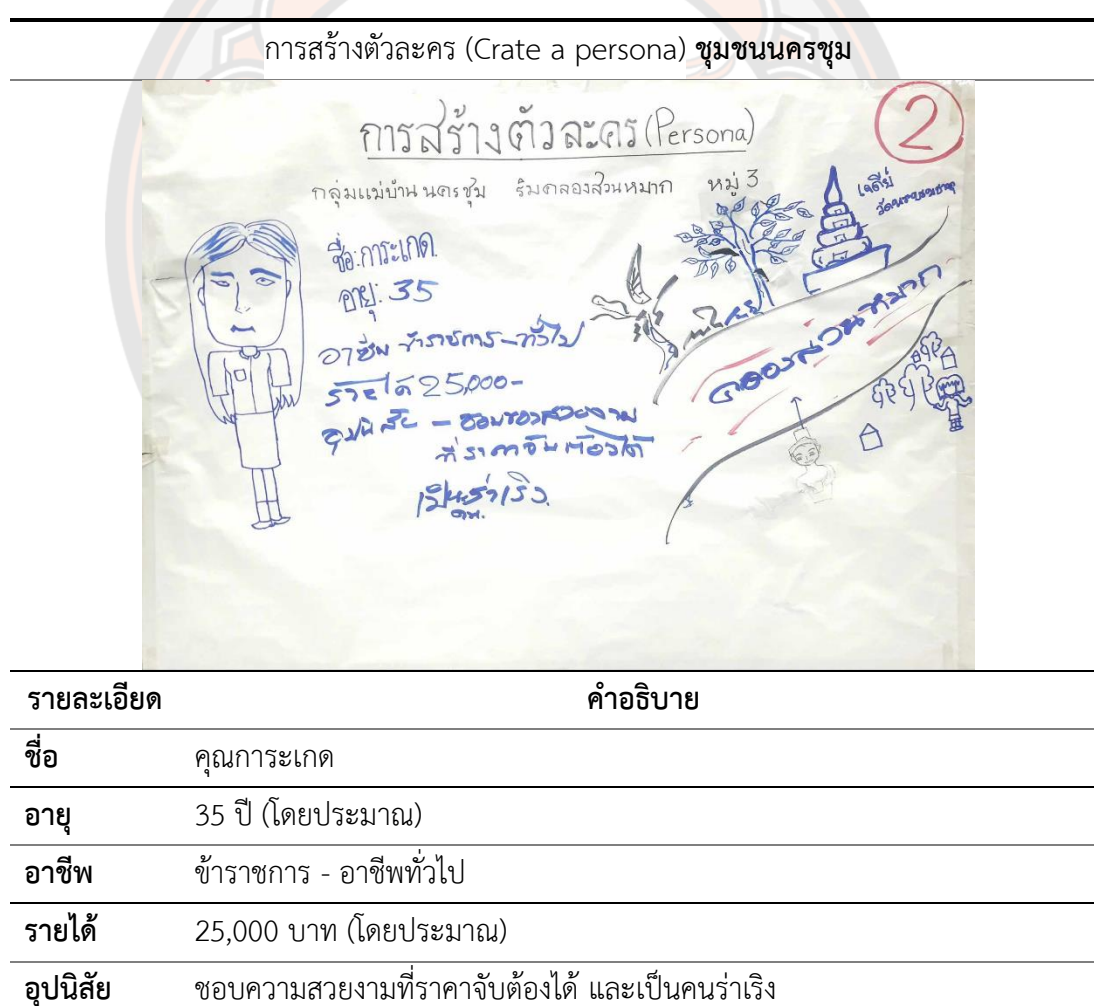 การสร้างตัวละคร (Crate a persona) ชุมชนนครชุม
การสร้างตัวละคร (Persona)
2
กลุ่มแม่บ้าน นครชุม ริมคลองสวนหมาก หมู่ 3
เจดีย์
ชื่อ: การะเกด
อายุ: 35
อาชีพ ข้าราชการ-ทั่วไป
รายได้ 25,000-
อุปนิสัย - ชอบของสวยงาม
ที่ราคาจับต้องได้
เป็นคนร่าเริง
คลองสวนหมาก
รายละเอียด คำอธิบาย
ชื่อ คุณการะเกด
อายุ 35 ปี (โดยประมาณ)
อาชีพ ข้าราชการ - อาชีพทั่วไป
รายได้ 25,000 บาท (โดยประมาณ)
อุปนิสัย ชอบความสวยงามที่ราคาจับต้องได้ และเป็นคนร่าเริง